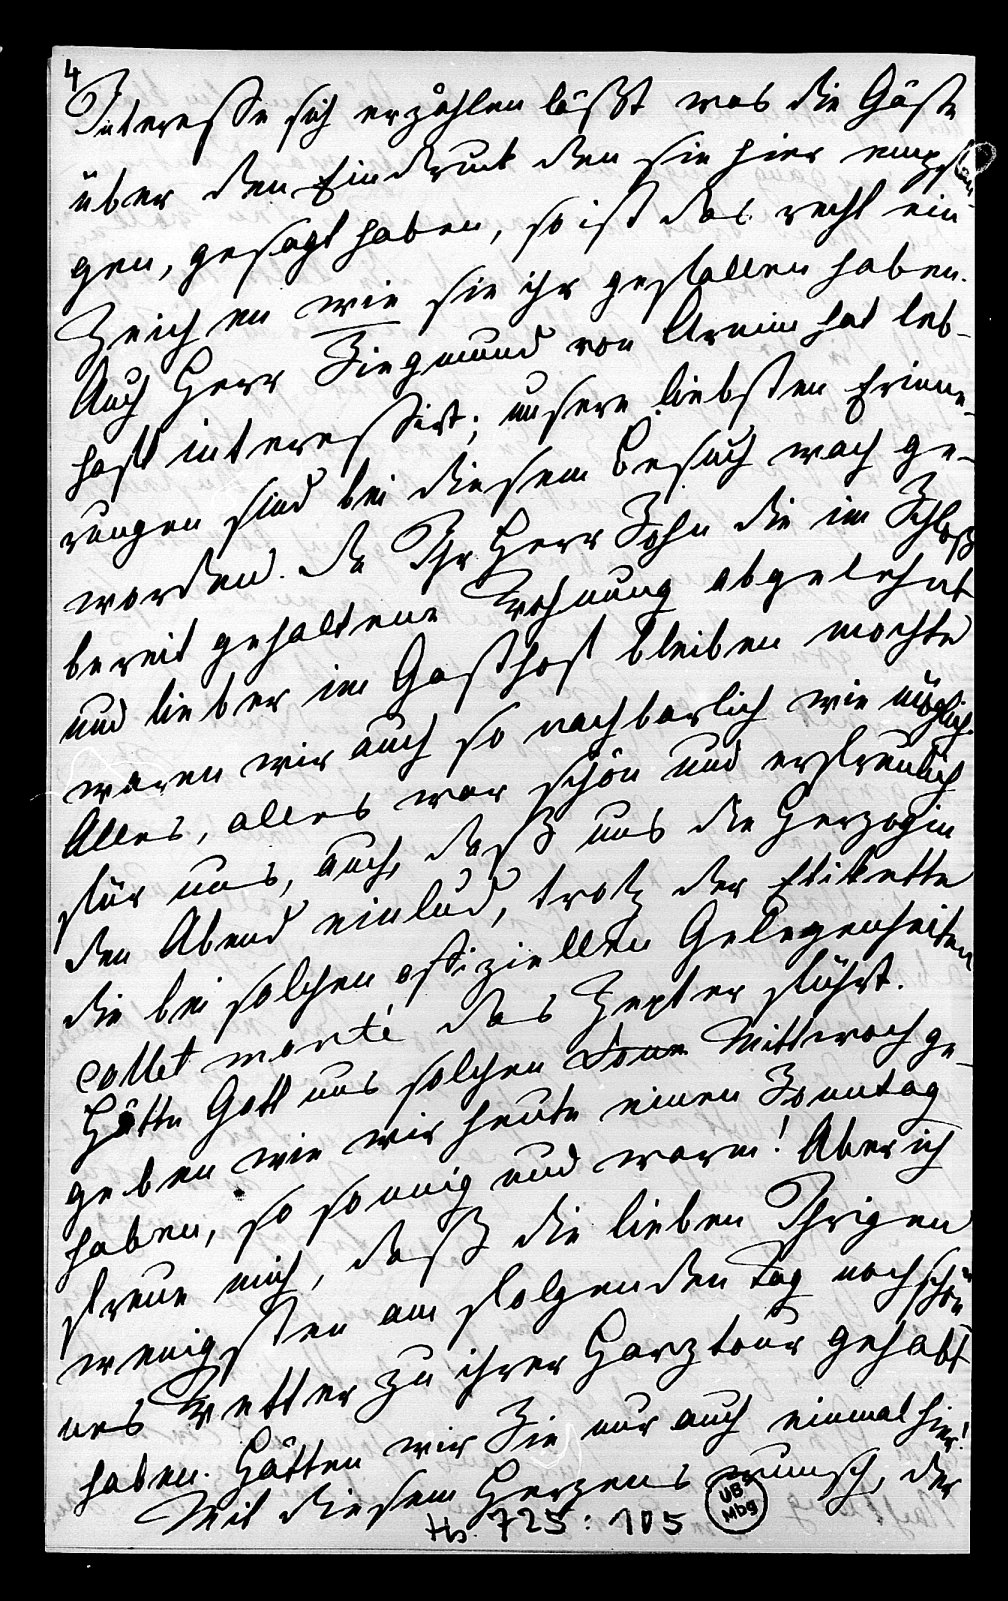 4
Interesse sich erzählen läßt was die Gäste
über den Eindruck den sie hier empfan-
gen, gesagt haben, so ist das recht ein
Zeichen wie sie ihr gefallen haben.
Auch Herr Siegmund von Arnim hat leb-
haft interessirt; unsere liebsten Erinne-
rungen sind bei diesem Besuch wach ge-
worden. Da Ihr Herr Sohn die im Schloß
bereit gehaltene Wohnung abgelehnt
und lieber im Gasthof bleiben mochte
waren wir auch so nachbarlich wie möglich.
Alles, alles war schön und erfreulich
für uns, auch, daß uns die Herzogin
den Abend einlud, trotz der Etikette
die bei solchen offiziellen Gelegenheiten
collet monté das Zepter führt.
Hätte Gott uns solchen Sonn Mittwoch ge-
geben wie wir heute einen Sonntag
haben, so sonnig und warm! Aber ich
freue mich, daß die lieben Ihrigen
wenigsten am folgenden Tag noch schö-
nes Wetter zu ihrer Harztour gehabt
haben. Hätten wir Sie nur auch einmal hier!
Mit diesem Herzenswunsch, der
Hs. 725: 105
UB
Mbg